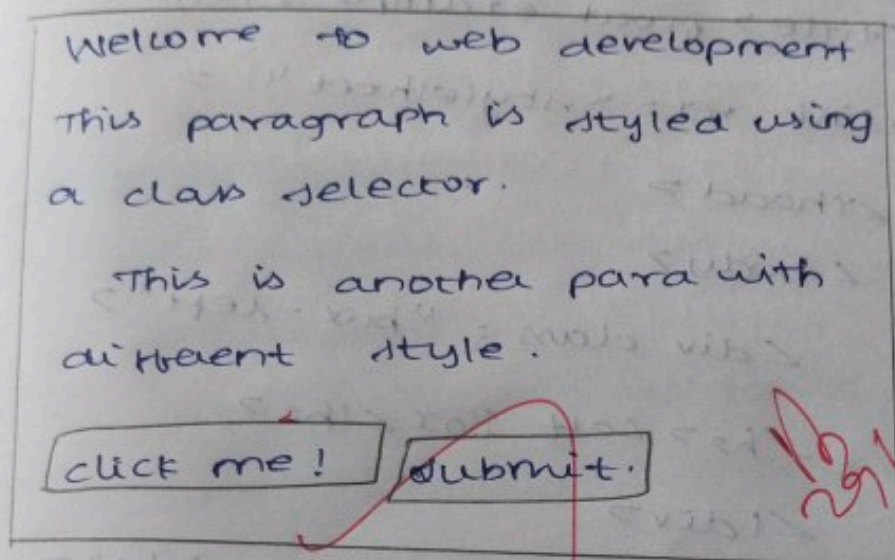 Welcome to web development
This paragraph is styled using
a class selector.
This is another para with
different style.
click me! submit.